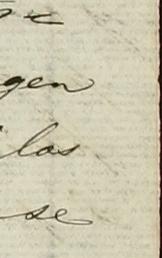 gen
las
se